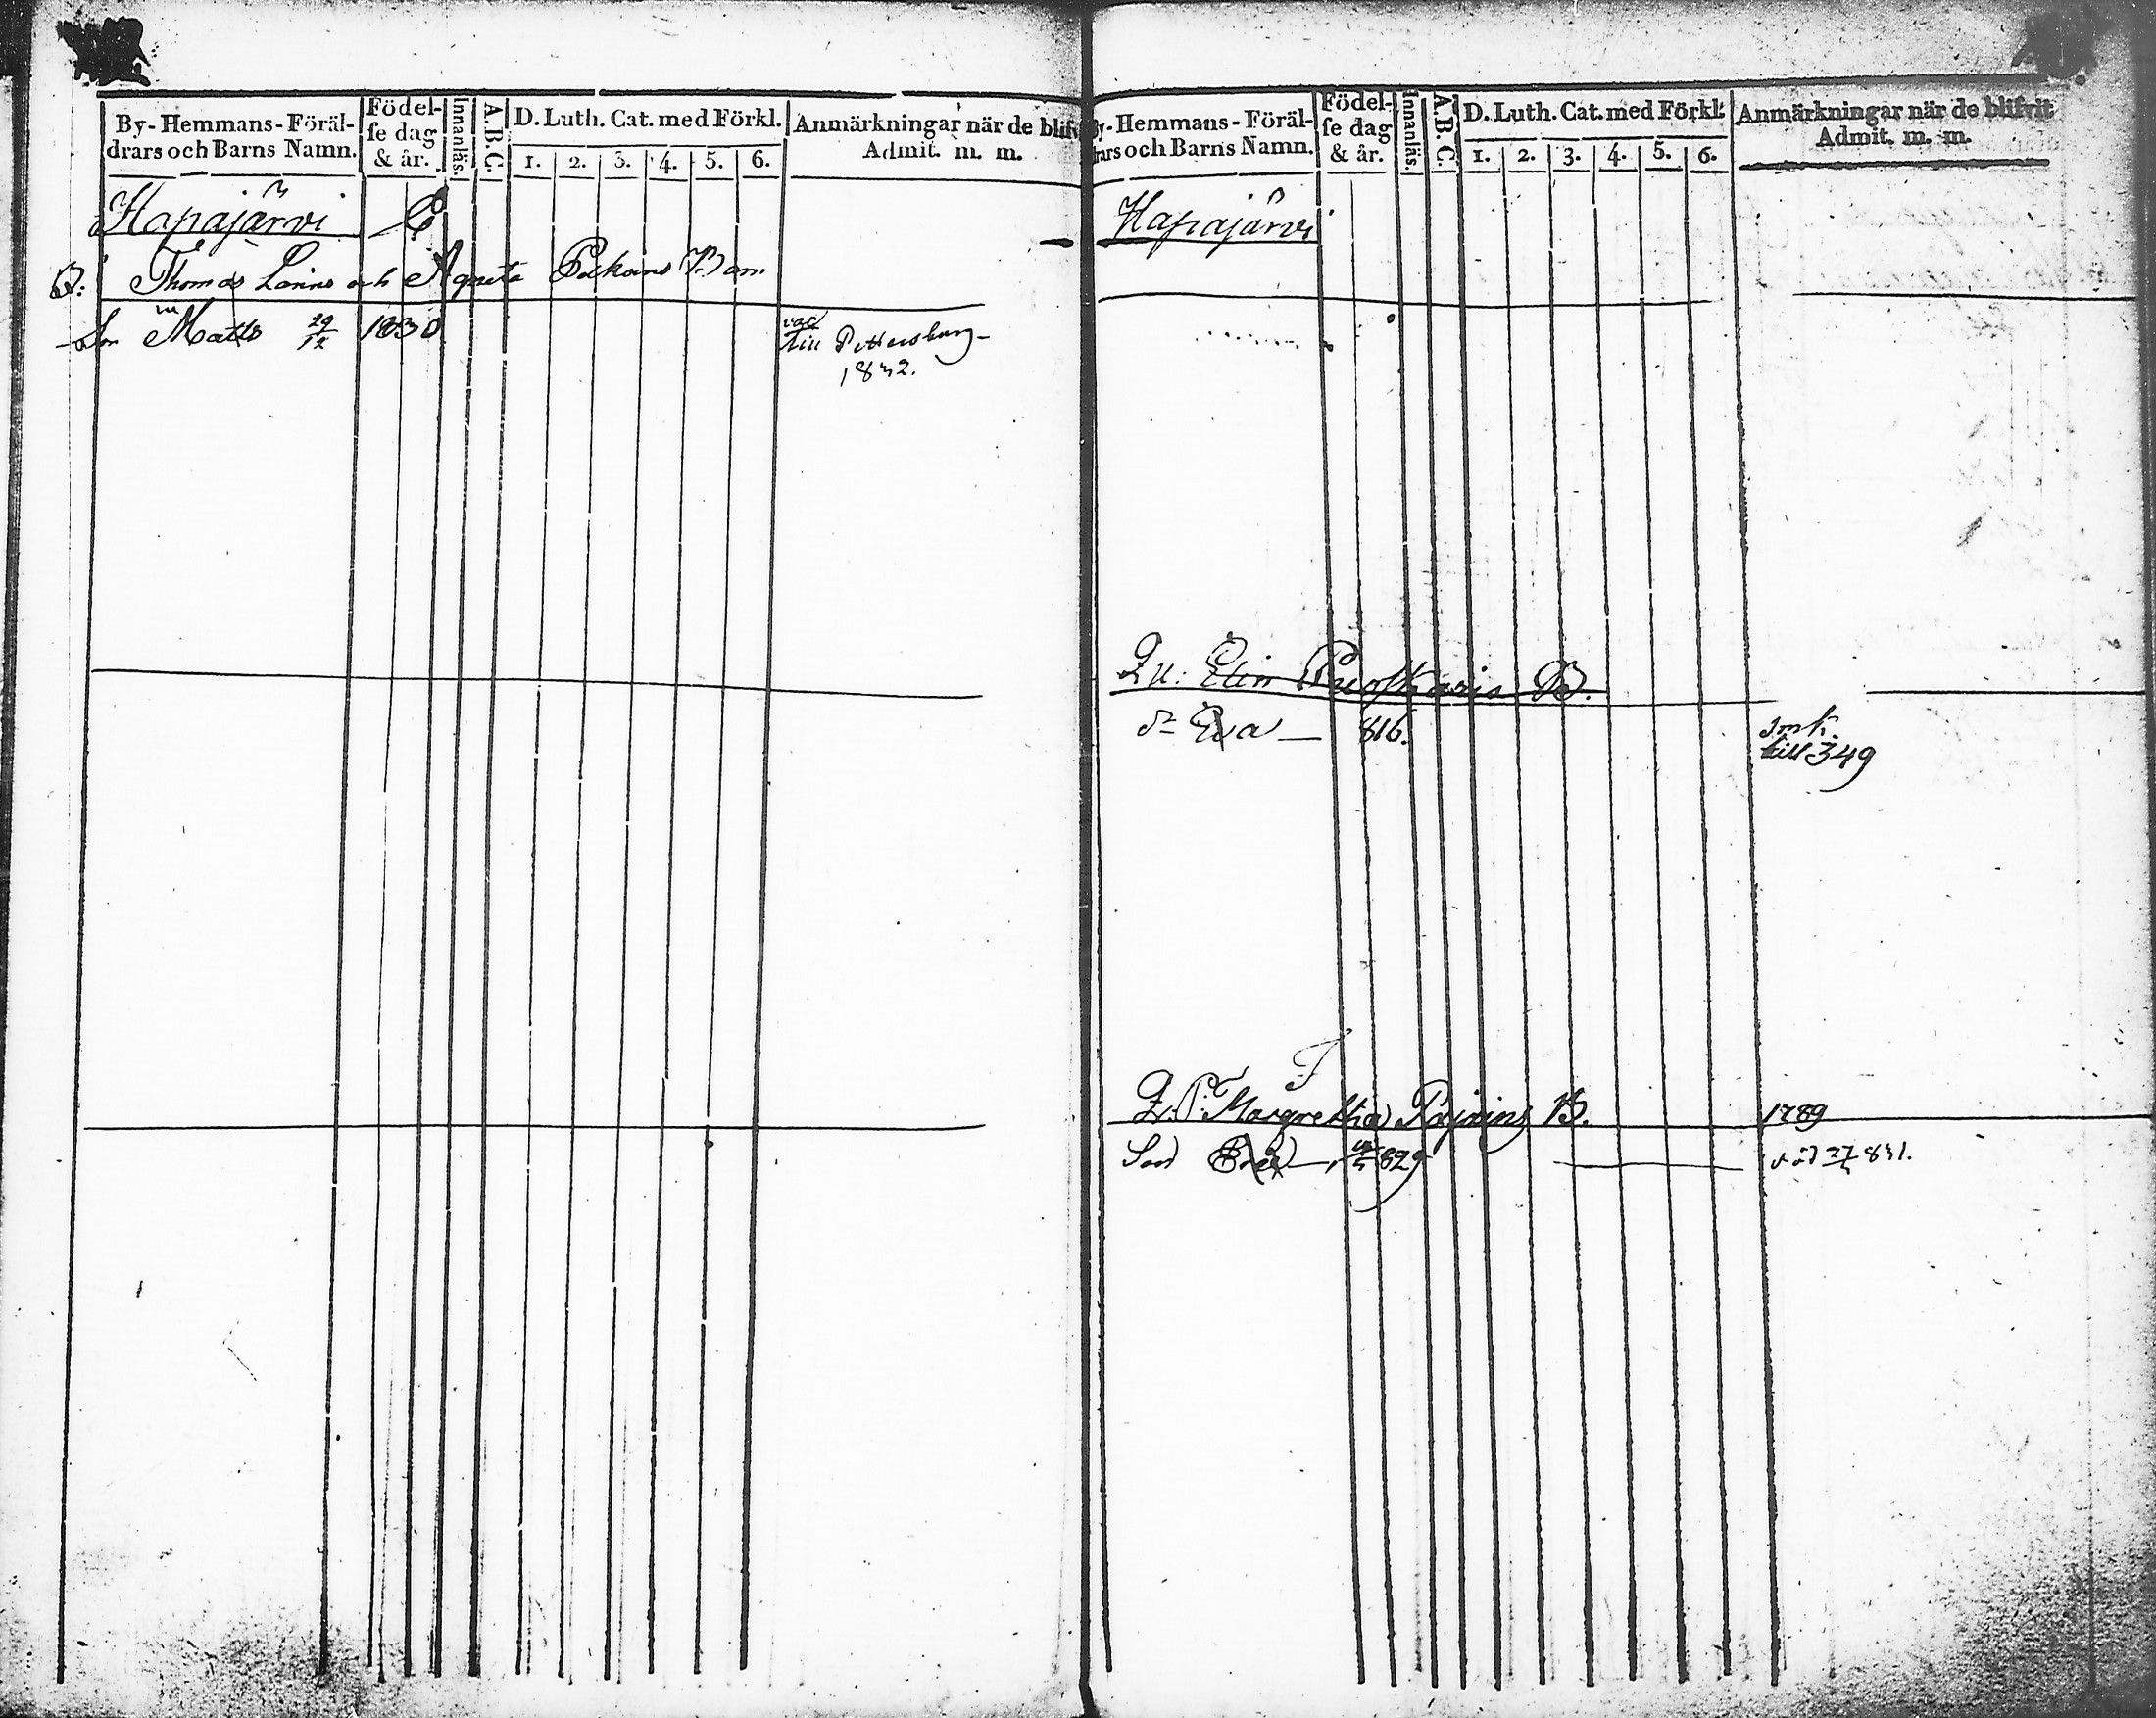 By-Hemmans-Föräl-
drars och Barns Namn.
Födel-
ſe dag
& år.
Innanläs.
A.B.C.
D. Luth. Cat. med Förkl.
1. 2. 3. 4. 5. 6.
Anmärkningar när de blifv
Admit. m. m.
Hapajärvi
Thomas och Agneta
Son Matts 29/12 1830
till Pettersburg
1832.
By-Hemmans-Föräl-
drars och Barns Namn.
Födel-
ſe dag
& år.
Innanläs.
A.B.C.
D. Luth. Cat. med Förkl.
1. 2. 3. 4. 5. 6.
Anmärkningar när de blifvit
Admit. m. m.
Hapajärvi
Elin B.
Eva — 816.
till 349
Margretha B. 1789
Son 829 831.